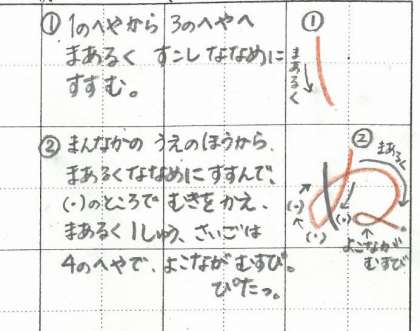 ① 1のへやから 3のへやへ
まあるく すこし ななめに
すすむ。
①
まあるく
② まんなかの うえのほうから、
まあるくななめにすすんで、
(・)のところで むきをかえ、
まあるく 1しゅう、さいごは
4のへやで、よこなが むすび。
ぴたっ。
②
まあるく
(・)
(・)
(・)
よこなが
むすび